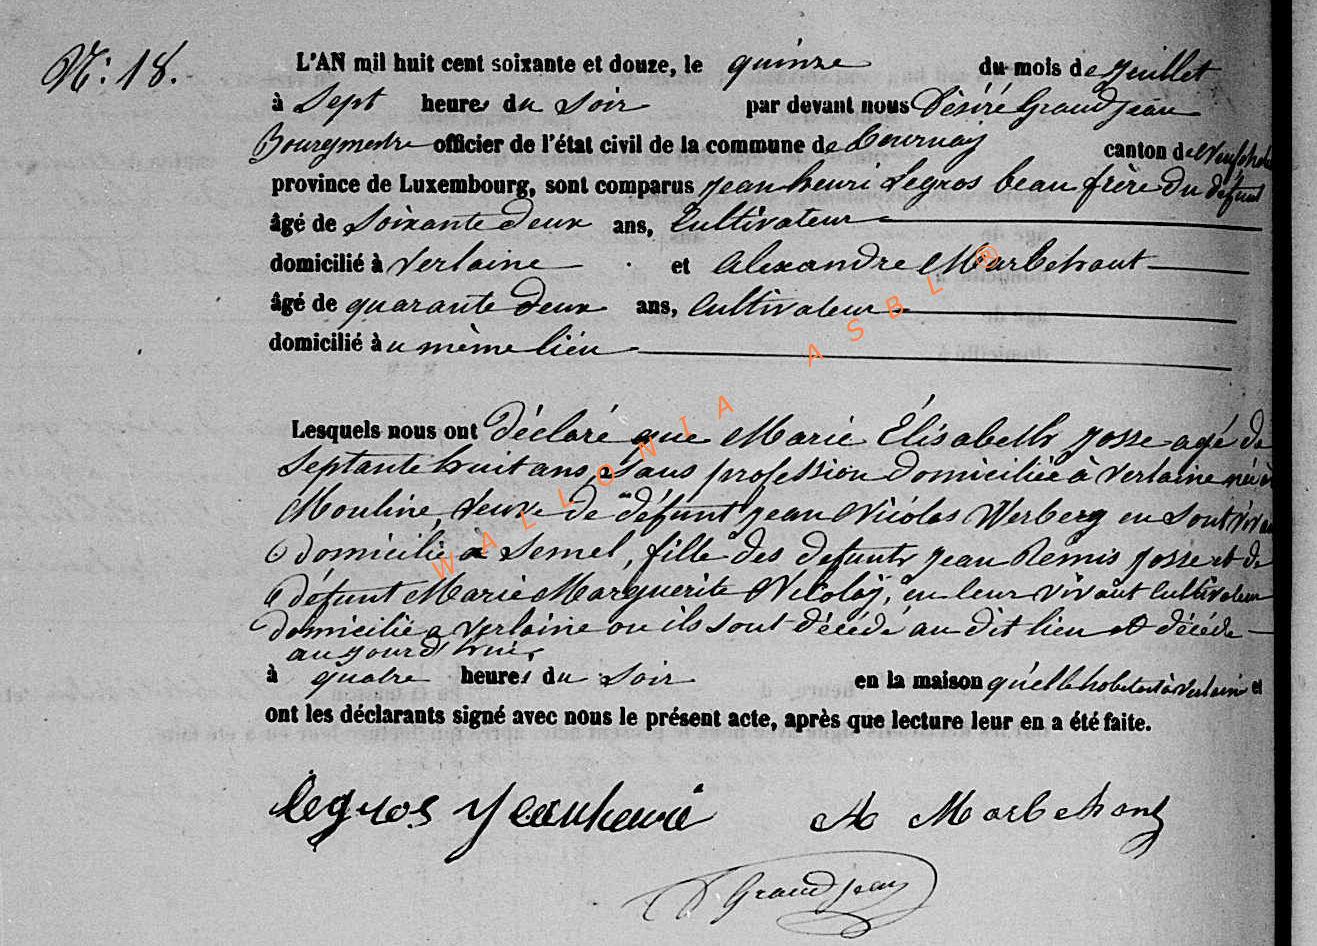 N: 18.
L'AN mil huit cent soixante et douze, le quinze du mois de juillet
à Sept heures du Soir par devant nous Désiré Grandjean
Bourgmestre officier de l'état civil de la commune de Tournay canton de Neufchâ
province de Luxembourg, sont comparus jean henri Legros beau frère du défunt
âgé de soixante deux ans, Cultivateur
domicilié à Verlaine et Alexandre Marbehant
âgé de quarante deux ans, Cultivateur
domicilié au même lieu
Lesquels nous ont déclaré que Marie Élisabeth Josse agé de
Septante huit ans, Sans profession domiciliée à Verlaine née à
Mouline, Veuve de défunt jean Nicolas Werberg en Sont viva
domicilié à Semel, fille des defunts jean Remis josse et de
défunt Marie Marguerite Nicolaÿ, en leur vivant Cultivateur
domicilié a Verlaine ou ils sont décédé au dit lieu et décédé
aujourd'huie
à quatre heures du Soir en la maison qu'elle habitent à Verlaine et
ont les déclarants signé avec nous le présent acte, après que lecture leur en a été faite.
Legros jeanhenri A Marbehant
D Grandjean
WALLONIA ASBL ®